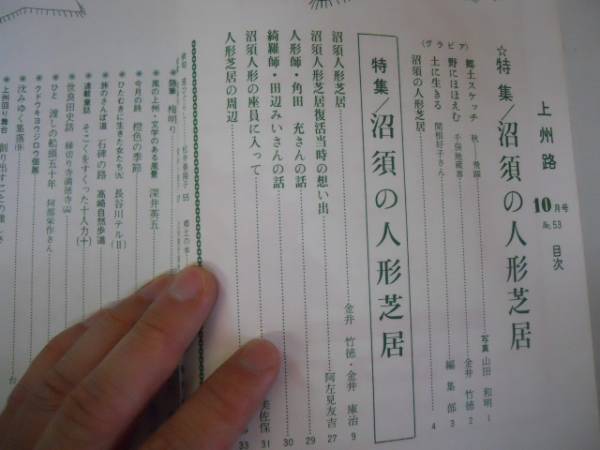 上州路 10月号 No.53 目次
☆特集／沼須の人形芝居 写真 山田和明 1
(グラビア)
郷土スケッチ 秋 金井竹徳 2
野にほほえむ 編集部 3
土に生きる 関根好子さん 4
沼須の人形芝居
特集／沼須の人形芝居
沼須人形芝居 金井竹徳・金井庫治 9
沼須人形芝居復活当時の想い出 阿左見友吉 27
人形師・角田 充さんの話 29
綺羅師・田辺みいさんの話 30
沼須人形の座員に入って 31
人形芝居の周辺 33
美佐保
●随筆 梅明り
●風の上州・文学のある風景 深井英五
●今月の詩 橙色の季節
●ひたむきに生きた女たち 長谷川テル(Ⅱ)
●旅のさんぽ道 石碑の路 高崎自然歩道
●連載童話 そこぐをすくった十人力(十)
●世良田史話 縁切り寺満徳寺
●ひと 渡しの船頭五十年 阿部栄作さん
●クドウキヨウジロウ個展
●沈みゆく集落
●上州回り舞台 創り出すことの難しさ